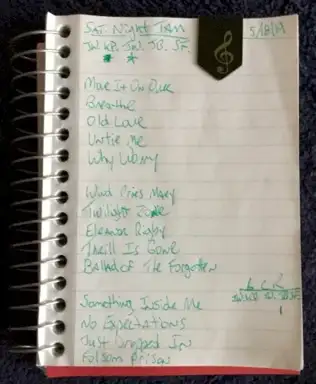 Sat. Night Jam 5/8/17
JW. KP. JW. JB. SF.
Move It On Over
Breathe
Old Love
Untie Me
Why Worry
Wind Cries Mary
Twilight Zone
Eleanor Rigby
Thrill Is Gone
Ballad of The Forgotten
L C R
Something Inside Me
No Expectations
Just Dropped In
Folsom Prison